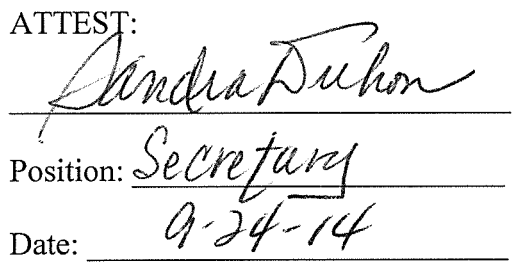 ATTEST:
Sandra Duhon
Position: Secretary
Date: 9-24-14